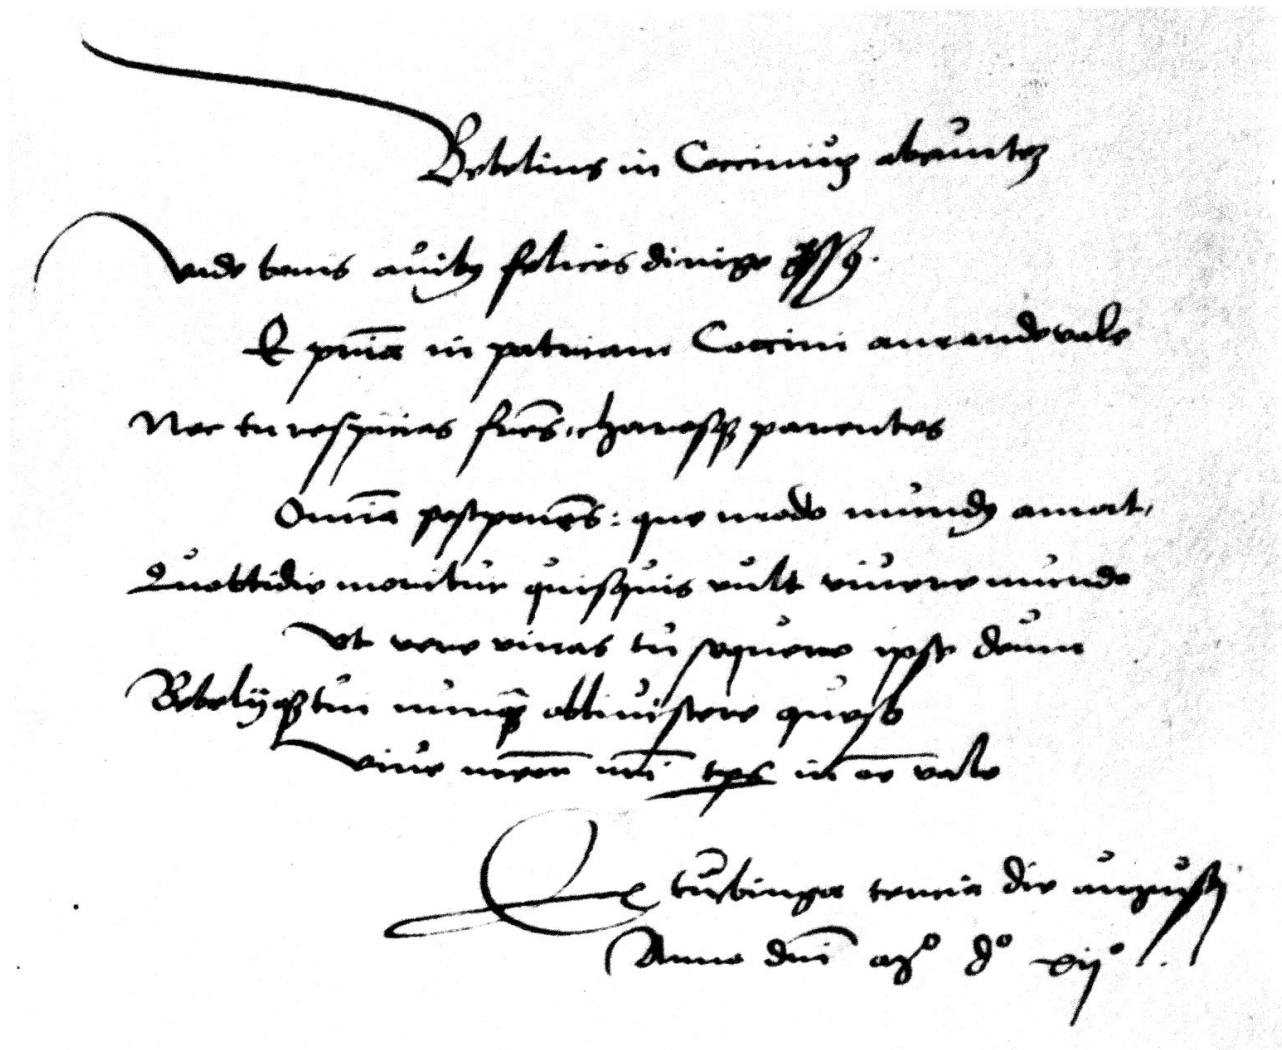 Bebelius in Coccinium abeuntem
Vade bonis avibus felices dirige
Et in patriam Coccini aurande vale
Nec tu respicias fratres, charosque parentes
Omnia postponens: que modo mundus amat,
Quottidie moritur quisquis vult vivere mundo
Ut vere vivas tu sequere ipse deum
Bebelijque tui nunquam oblivistere queso
vive memor nostri tempus in omne vale
Ex tubinga tercia die augusti
Anno domini xij°